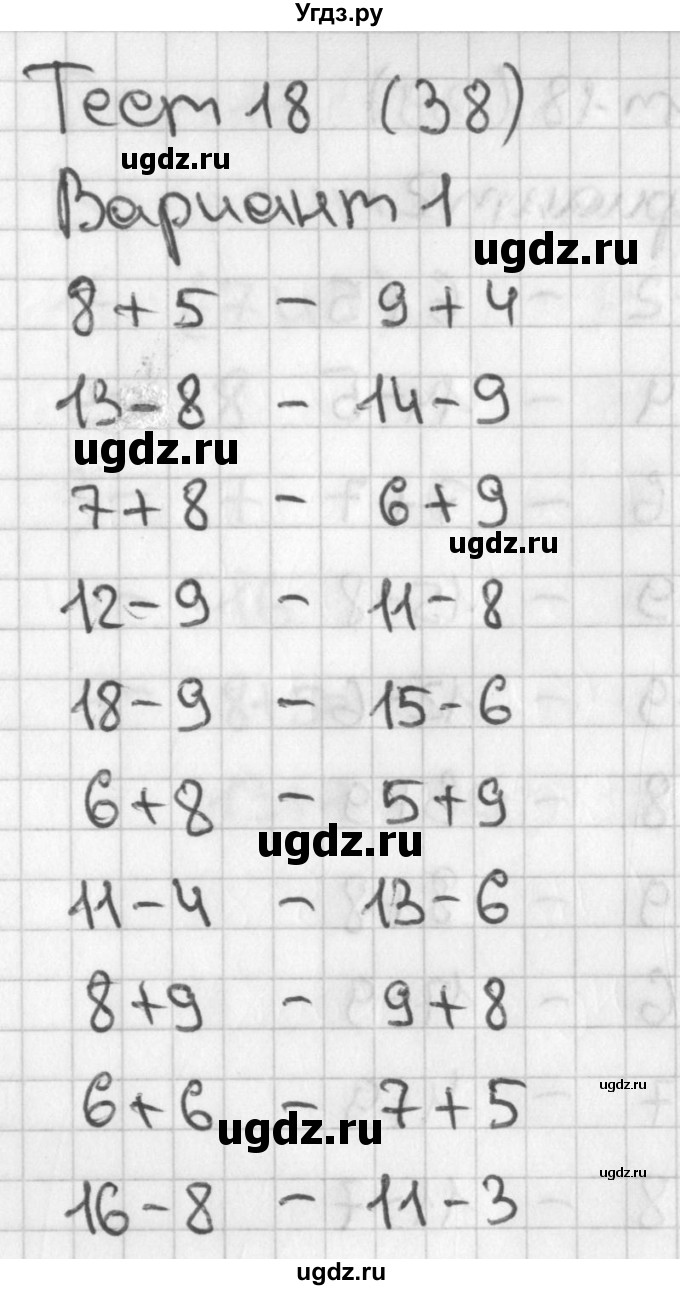 Угдз.ру
Тест 18 (38)
ugdz.ru
Вариант 1
ugdz.ru
8 + 5 - 9 + 4
13 - 8 - 14 - 9
ugdz.ru
7 + 8 - 6 + 9
ugdz.ru
12 - 9 - 11 - 8
18 - 9 - 15 - 6
6 + 8 - 5 + 9
ugdz.ru
11 - 4 - 13 - 6
8 + 9 - 9 + 8
ugdz.ru
6 + 6 - 7 + 5
ugdz.ru
ugdz.ru
16 - 8 - 11 - 3
ugdz.ru